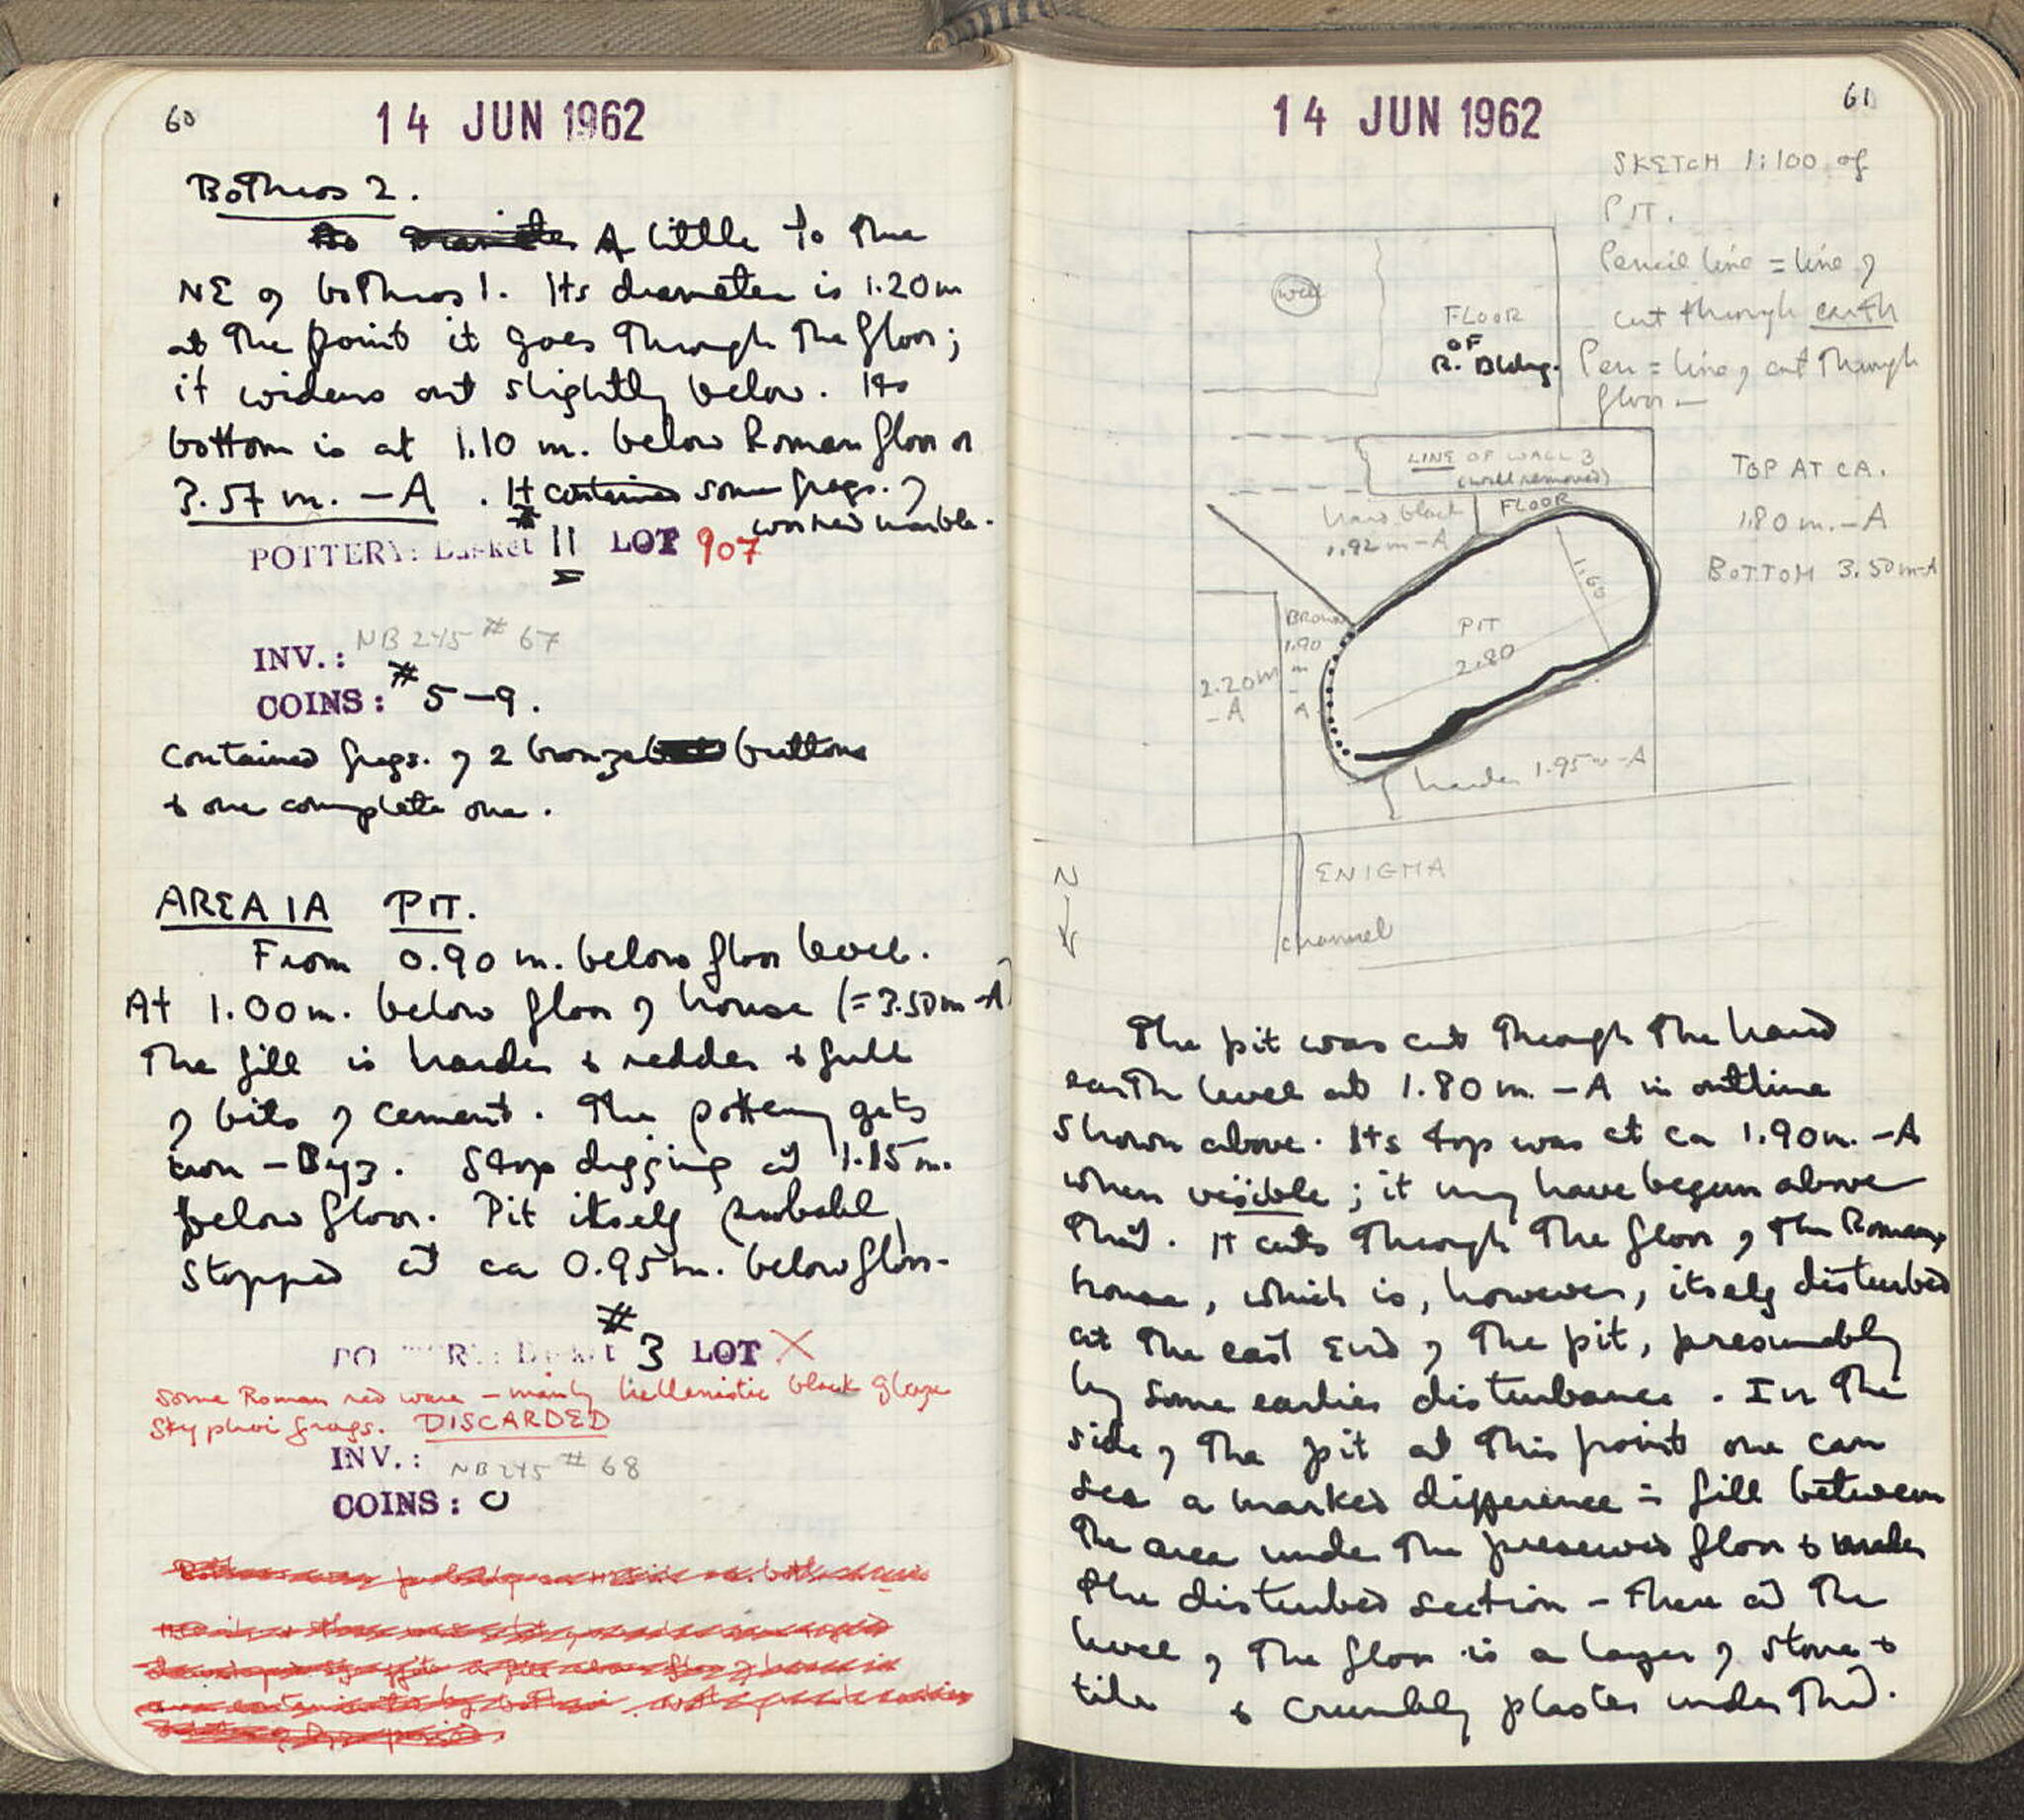 60
14 JUN 1962
Bothros 2.
A little to the
NE of bothros 1. Its diameter is 1.20m
at the point it goes through the floor;
it widens out slightly below. Its
bottom is at 1.10 m. below Roman floor or
3.57 m. – A . It contained some frags. of
worked marble.
POTTERY: Basket # 11 LOT 907
INV.: NB 245 # 67
COINS: # 5–9.
Contained frags. of 2 bronze buttons
& one complete one.
AREA 1A PIT.
From 0.90 m. below floor level.
At 1.00 m. below floor of house (=3.50m –A)
the fill is harder & redder & full
of bits of cement. The pottery gets
non – Byz. Stop digging at 1.15 m.
below floor. Pit itself probabl
stopped at ca 0.95 m. below floor.
POTTERY: Basket # 3 LOT X
Some Roman red ware – mainly hellenistic black glaze
skyphoi frags. DISCARDED
INV.: NB 245 # 68
COINS: 0
61
14 JUN 1962
SKETCH 1:100 of
PIT.
Pencil line = line of
cut through earth
Pen = line of cut through
floor –
well
FLOOR
OF
R. Bldng.
LINE OF WALL 3
(wall removed)
TOP AT CA.
1.80 m. – A
BOTTOM 3.50m–A
hard black
1.92 m – A
FLOOR
1.60
BROWN
1.90
m
–
A
PIT
2.80
2.20m
– A
harder 1.95m – A
N
ENIGMA
channel
The pit was cut through the hard
earth level at 1.80 m. – A in outline
shown above. Its top was at ca 1.90m. – A
when visible; it may have begun above
that. It cuts through the floor of the Roman
house, which is, however, itself disturbed
at the east end of the pit, presumably
by some earlier disturbance. In the
side of the pit at this point one can
see a marked difference in fill between
the area under the preserved floor & under
the disturbed section – there at the
level of the floor is a layer of stone &
tile & crumbly plaster under that.